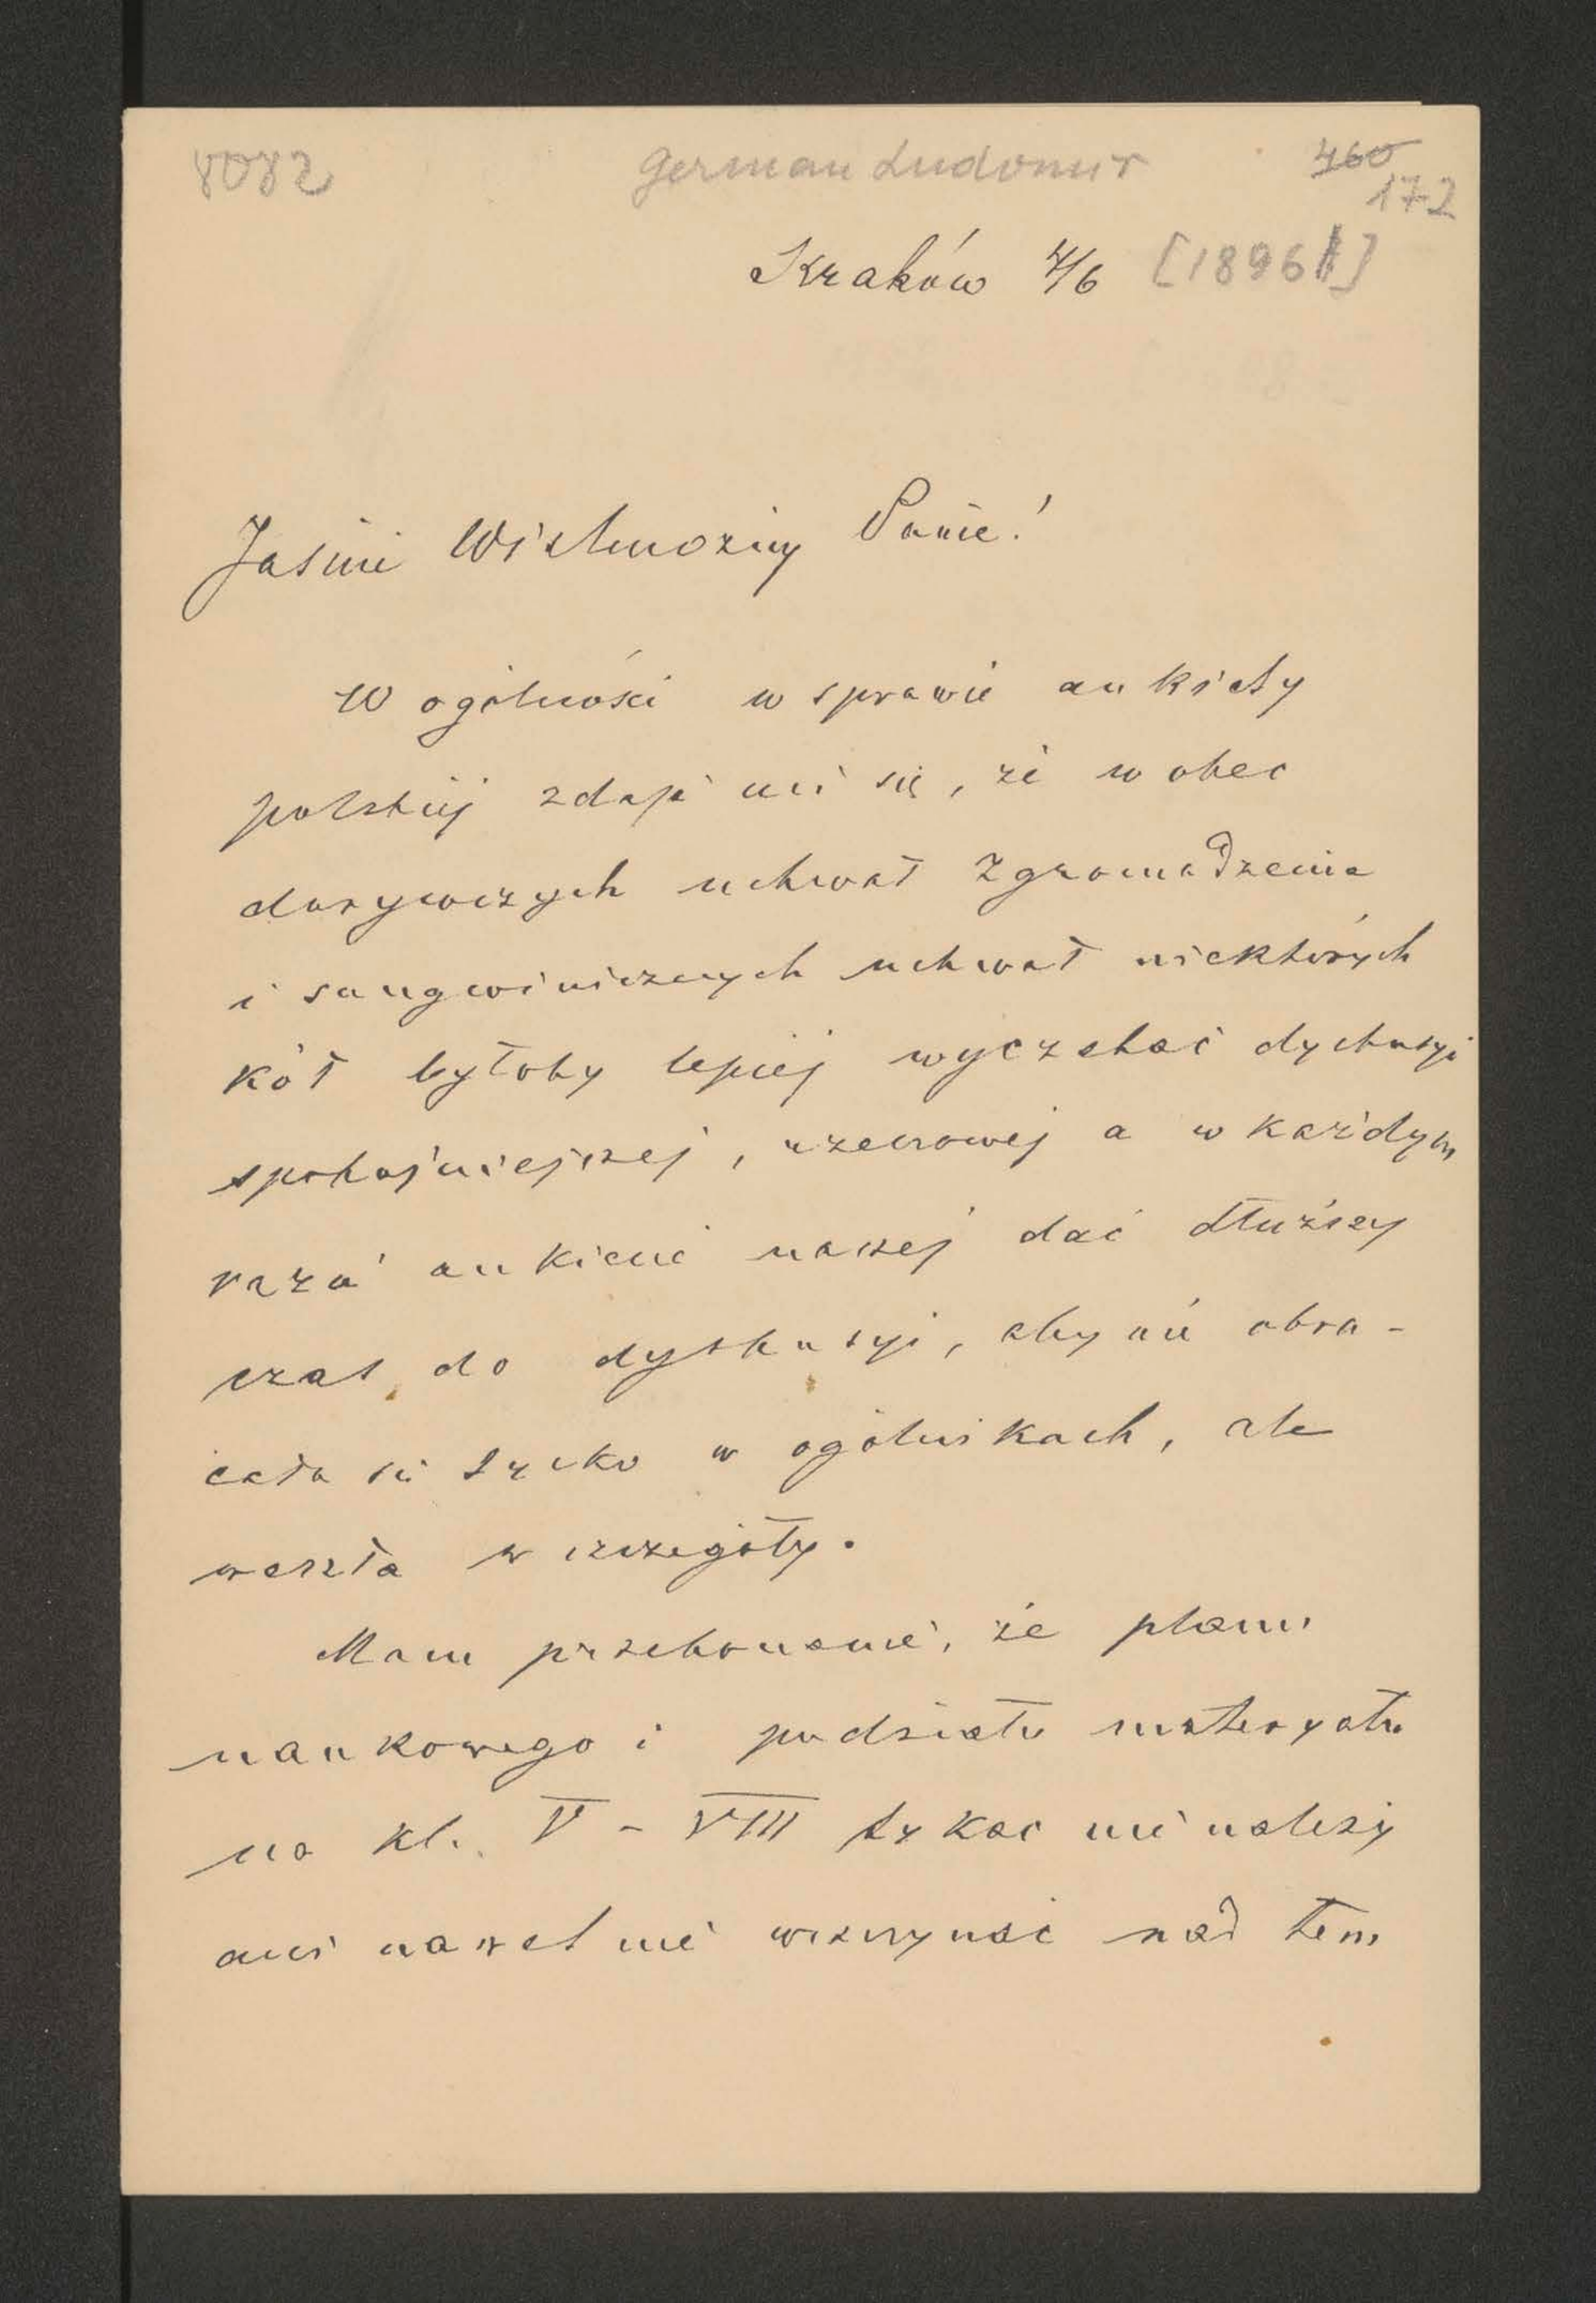 8082
German Ludomir
460
172
Kraków 4/6 [1896]
Jaśnie Wielmożny Panie!
W ogólności w sprawie ankiety
polskiej zdaje mi się, że wobec
dorywczych uchwał Zgromadzenia
i sangwinicznych uchwał niektórych
kół byłoby lepiej wyczekać dyskusyi
spokojniejszej, rzeczowej a w każdym
razie ankiecie naszej dać dłuższy
czas do dyskusyi, aby nie obra-
cała się tylko w ogólnikach, ale
weszła w szczegóły.
Mam przekonanie, że planu
naukowego i podziału materyału
na kl. V – VIII tykać nie należy
ani nawet nie wszczynać nad tem